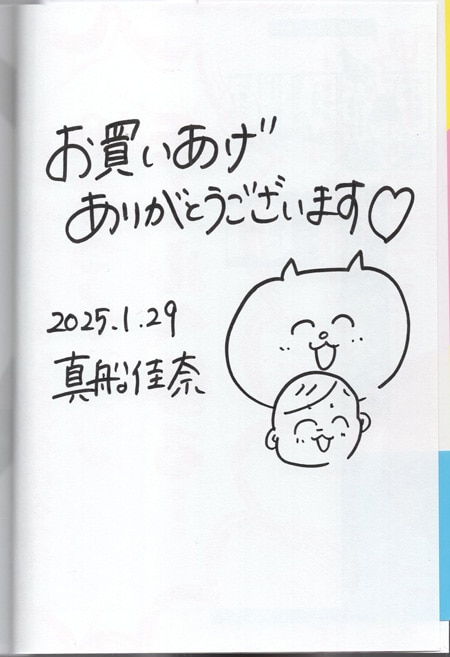 お買いあげ
ありがとうございます♡
2025.1.29
真船佳奈